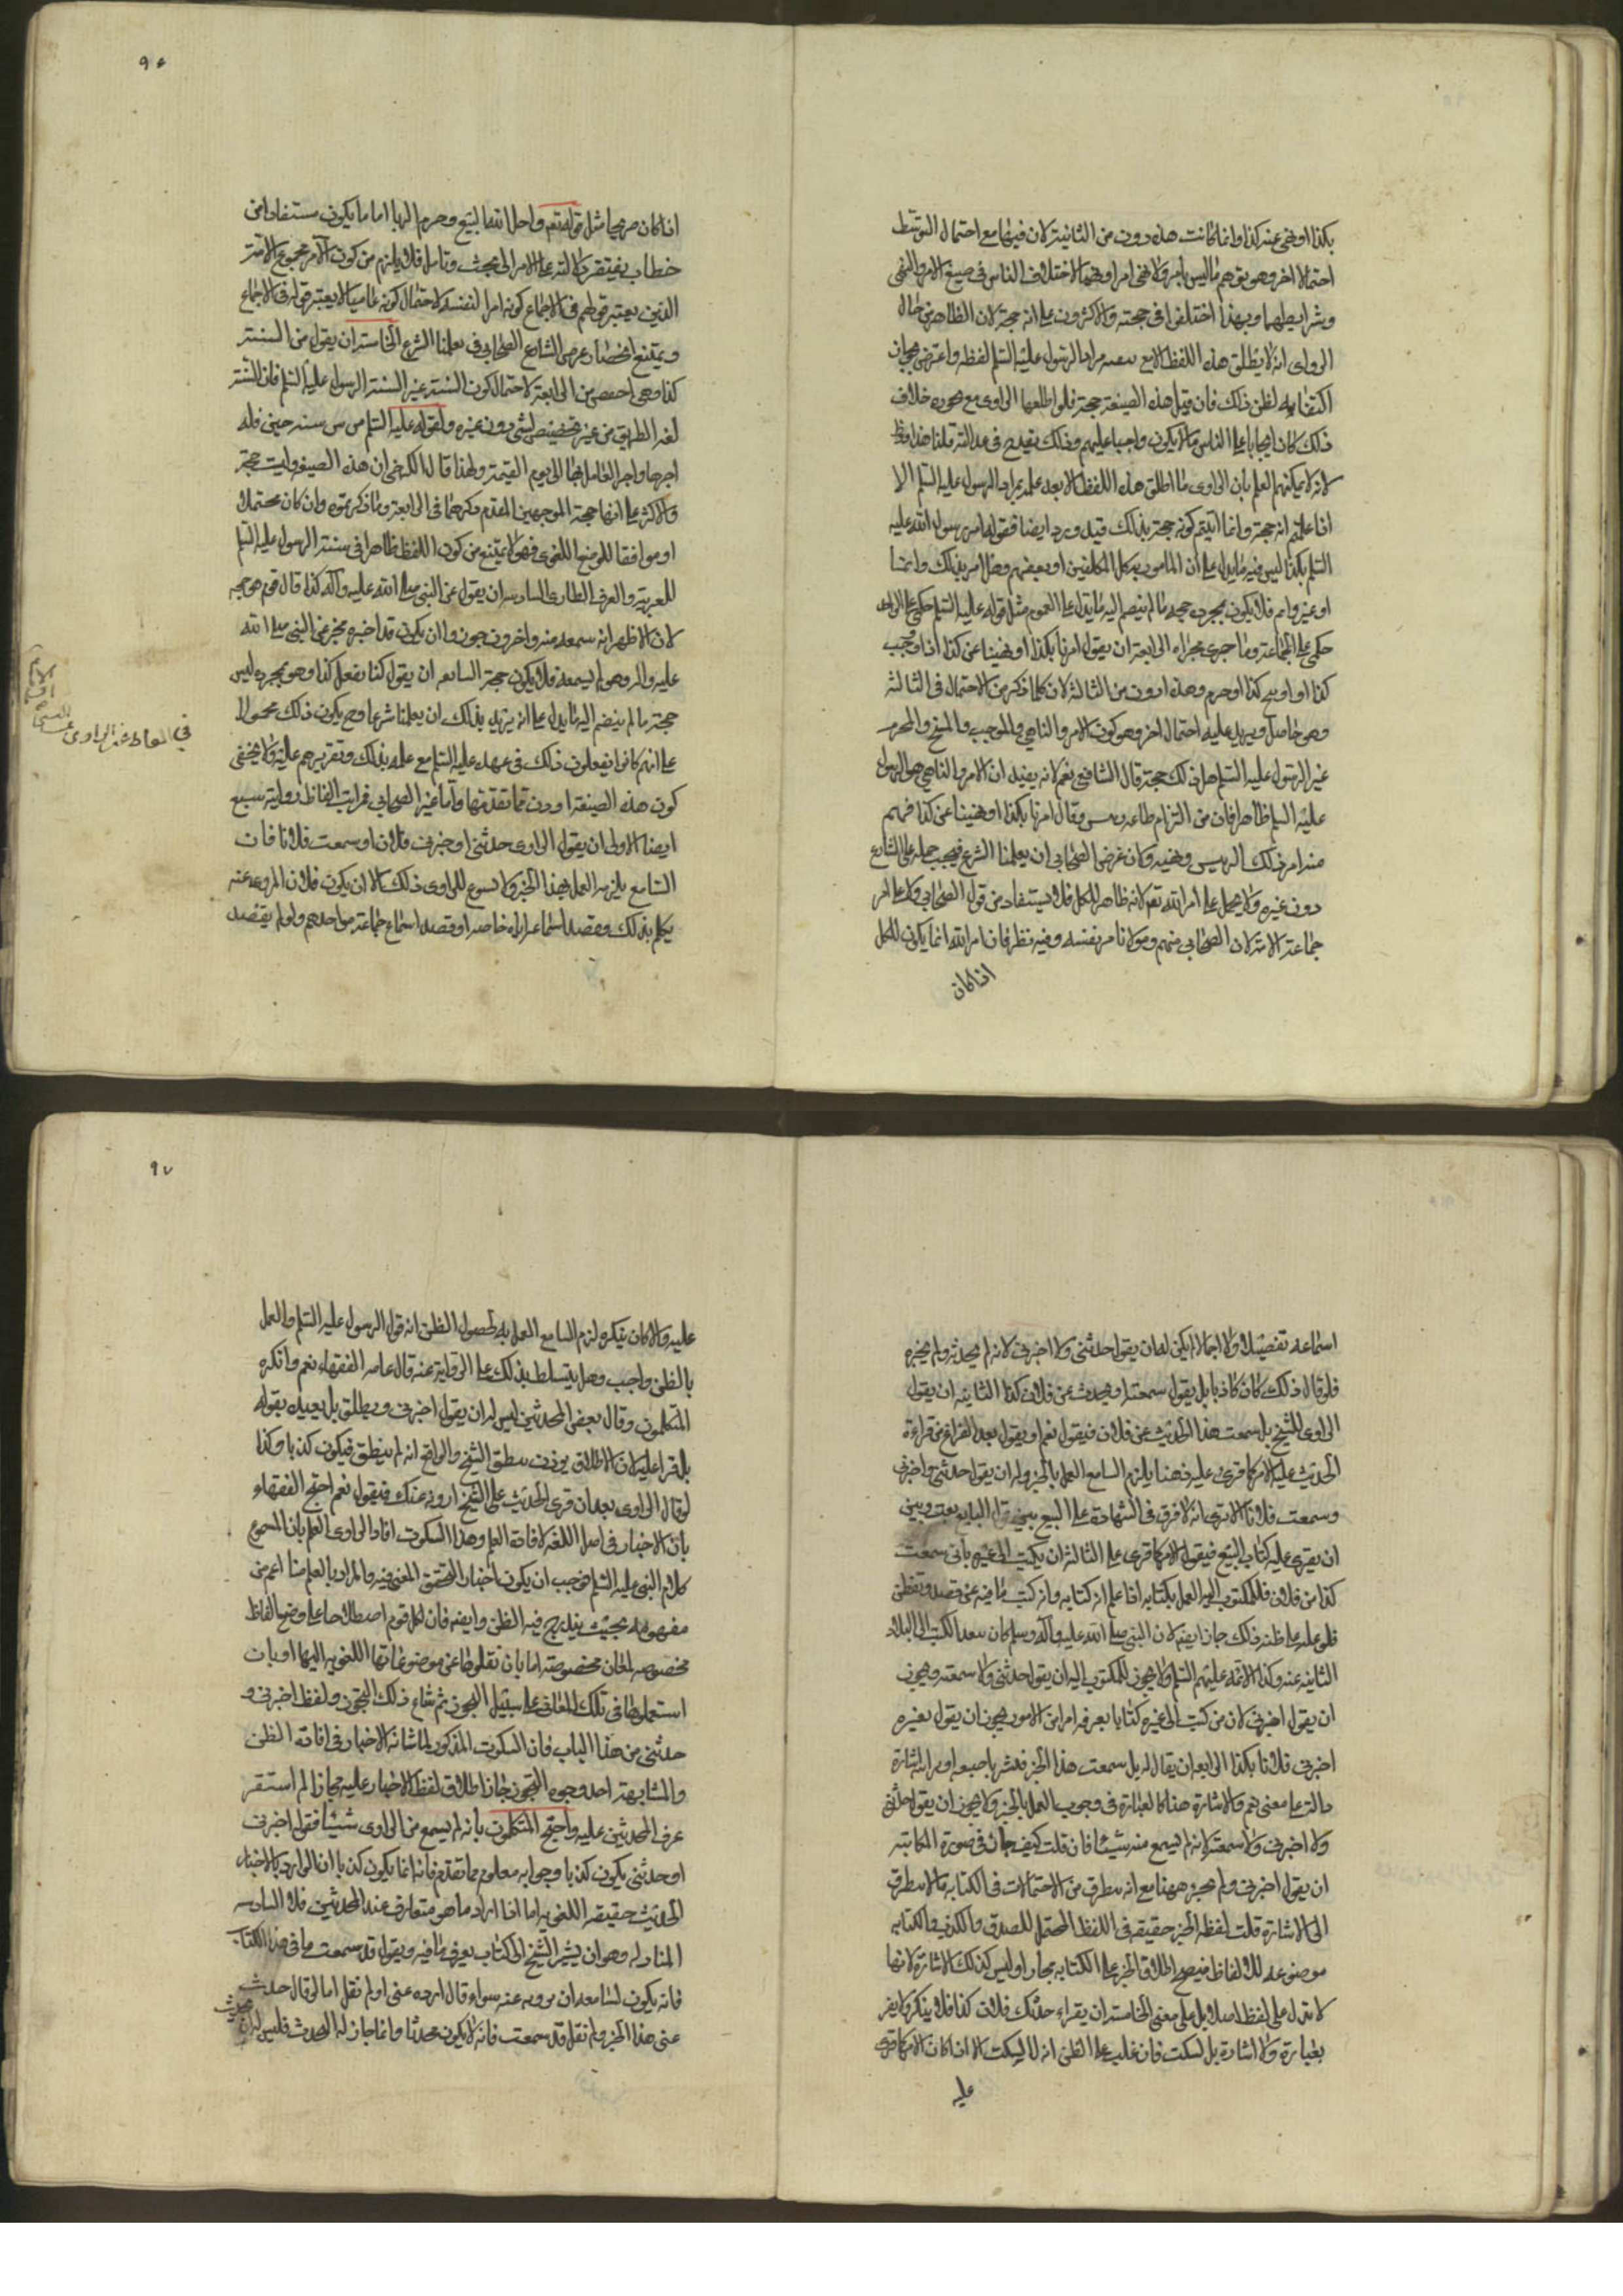 بكذا او نهى عن كذا وانما كانت هذه دون من الثانية لان فيها مع احتمال التوسط
احتمالا اخر وهو توهم ما ليس بامر ولا نهى امرا ونهيا لاختلاف الناس في صيغ الامر والنهى
وشرايطهما وبهذا اختلفوا في حجته والاكثرون على انه حجة لان الظاهر من حال
الراوى انه لا يطلق هذه اللفظة الا مع مراد الرسول عليه السلم لفظه واعترض بجواز
اكتفائه لظن ذلك فان قيل هذه الصيغة حجة فلو اطلقها الراوى مع تجويزه خلاف
ذلك كان ايجابا على الناس ما لا يكون واجبا عليهم وذلك يقدح في عدالته قلنا هذا
لانه لا يمكنهم العلم بان الراوى ما اطلق هذه اللفظة الا بعد علمه بمراد الرسول عليه السلم الا
اذا علمتم انه حجة وانما اثبتم كونه حجة بذلك قيل ويرد ايضا فقوله امر رسول الله عليه
السلم بكذا ليس فيه ما يدل على ان المامور به كل المكلفين او بعضهم وهل امر بذلك دائما
او غير دائم فلا يكون بمجرده حجه ما لم ينضم اليه ما يدل على العموم مثل قوله عليه السلم حكمى على الواحد
حكمى على الجماعة وما جرى مجراه الرابعة ان يقول امرنا بكذا او نهينا عن كذا او وجب
كذا او ابيح كذا او حرم وهذه ادون من الثالثة لان كلما ذكر من الاحتمال في الثالثة
وهو حاصل ويزيد عليه احتمال اخر وهو كون الامر والناهى والموجب والمبيح والمحرم
غير الرسول عليه السلم هل ذلك حجة قال الشافعى نعم لانه يفيد ان الامر والناهى هو الرسول
عليه السلم ظاهرا فان من التزم طاعة رئيس وقال امرنا بكذا او نهينا عن كذا فهم
منه امر ذلك الرئيس ونهيه وكان غرض الصحابى ان يعلمنا الشرع فيجب حمله على الشارع
دون غيره ولا يحمل على امر الله تعالى لانه ظاهر للكل فلا يستفاد من قول الصحابى ولا على امر
جماعة الامة لان الصحابى منهم وهو لا يامر نفسه وفيه نظر فان امر الله انما يكون للكل
اذا كان
٩٥
اذا كان صريحا مثل قوله تعم واحل الله البيع وحرم الربا اما ما يكون مستفادا من
خطاب يفتقر دلالته على الامر الى بحث وتامل فلا ولا يلزم من كون الامر مجموع الامة
الذين يعتبر قولهم في الاجماع كونه امرا لنفسه لاحتمال كونه عاميا لا يعتبر قوله في الاجماع
ويمتنع انحصار غرض الشارع الصحابى في يعلمنا الشرع الخامسة ان يقول من السنة
كذا وهى اخفض من الرابعة لاحتمال كون السنة غير السنة الرسول عليه السلم فان السنة
لغة الطريق من غير تخصيص لشى دون غيره ولقوله عليه السلم من سن سنة حسنة فله
اجرها واجر العامل بها الى يوم القيمة ولهذا قال الكرخى ان هذه الصيغة ليست حجة
والاكثر على انها حجة للوجهين المقدم ذكرهما في الرابعة وما ذكرتموه وان كان محتملا
او موافقا للوضع اللغوى فهو لا يمنع من كون اللفظ ظاهرا في سنة الرسول عليه السلم
للعربية والعرف الطارى السادسة ان يقول عن النبى صلى الله عليه وآله كذا قال قوم هو حجة
لان الاظهر انه سمعه منه واخرون جوزوا ان يكون قد اخبره مخبر عن النبى صلى الله
عليه وآله وهو لم يسمعه فلا يكون حجة السابعة ان يقول كنا نفعل كذا وهو بمجرده ليس
حجة ما لم ينضم اليه ما يدل على انه يريد بذلك ان يعلمنا شرعا وح يكون ذلك محمولا
على انهم كانوا يفعلون ذلك في عهده عليه السلم مع علمه بذلك وتقريرهم عليه ولا يخفى
كون هذه الصيغة ادون مما تقدمها واما غير الصحابى فمراتب الفاظ روايته سبع
ايضا الاولى ان يقول الراوى حدثنى او اخبرنى فلان او سمعت فلانا فان
السامع يلزمه العمل بهذا الخبر ولا يسوغ للراوى ذلك الا ان يكون فلان المروى عنه
يكلم بذلك وقصد اسماعه اياه خاصة او قصد اسماع جماعة هو احدهم ولو لم يقصد
في الفاظ غير الراوى
اسماعه تفصيلا ولا اجمالا لم يكن له ان يقول حدثنى ولا اخبرنى لانه لم يحدثه ولم يخبره
فلو قال ذلك كان كاذبا بل يقول سمعته او يحدث عن فلان كذا الثانية ان يقول
الراوى للشيخ هل سمعت هذا الحديث عن فلان فيقول نعم او يقول بعد الفراغ من قراءة
الحديث عليه الامر كما قرئ عليه فهنا يلزم السامع العمل بالخبر وله ان يقول حدثنى واخبرنى
وسمعت فلانا الا ترى انه لا فرق في الشهادة على البيع بين قول البايع بعت وبين
ان يقرئ عليه كتاب البيع فيقول الامر كما قرئ على الثالثة ان يكتب الى غيره بانى سمعت
كذا من فلان فللمكتوب اليه العمل بكتابه اذا علم انه كتابه وانه كتب ما فيه عن قصد وتفطن
فلو غلب على ظنه ذلك جاز ايضا لان النبى صلى الله عليه وآله وسلم كان ينفذ الكتب الى البلاد
النائية عنه وكذا الائمة عليهم السلم ولا يجوز للمكتوب اليه ان يقول حدثنى ولا سمعته ويجوز
ان يقول اخبرنى لان من كتب الى غيره كتابا يعرفه امرا من الامور يجوز ان يقول بغيره
اخبرنى فلانا بكذا الرابعة ان يقال له هل سمعت هذا الخبر فيشير باصبعه او براسه اشارة
دالة على معنى نعم والاشارة هنا كالعبارة في وجوب العمل بالخبر ولا يجوز ان يقول حدثنى
ولا اخبرنى ولا سمعته لانه لم يسمع منه شيئا فان قلت كيف جاز في صورة المكاتبة
ان يقول اخبرنى ولم يجز ههنا مع انه يتطرق من الاحتمالات في الكتابة ما لا يتطرق
الى الاشارة قلت لفظة الخبر حقيقة في اللفظ المحتمل للصدق والكذب والكتابة
موضوعة للالفاظ فيصح اطلاق الخبر على الكتابة مجازا وليس كذلك الاشارة لانها
لا تدل على لفظ اصلا بل على معنى الخامسة ان يقراء حدثك فلان كذا فلا ينكر ولا يقر
بعبارة ولا اشارة بل يسكت فان غلب على الظن انه لا يسكت الا اذا كان الامر كما قرئ
عليه
٩٧
عليه والا كان ينكره لزم السامع العمل به لحصول الظن انه قول الرسول عليه السلم والعمل
بالظن واجب وهل يتسلط بذلك على الرواية عنه قال عامة الفقهاء نعم وانكره
المتكلمون وقال بعض المحدثين ليس له ان يقول اخبرنى ويطلق بل يقيده بقوله
بالقراءة عليه لان الاطلاق يوذن بنطق الشيخ والواقع انه لم ينطق فيكون كذبا وكذا
لو قال الراوى بعد ان قرئ الحديث على الشيخ ارويه عنك فيقول نعم احتج الفقهاء
بان الاخبار في اصل اللغة لافادة العلم وهذا السكوت افاد الراوى العلم بان المسموع
كلام النبى عليه السلم فوجب ان يكون اخبارا لتحقق المعنى فيه والمراد بالعلم هنا اعم من
مفهومه بحيث يندرج فيه الظن وايضا فان لكل قوم اصطلاحا على وضع الفاظ
مخصوصة لمعان مخصوصة اما بان نقلوها عن موضوعاتها اللغوية اليها او بان
استعملوها في تلك المعانى على سبيل التجوز ثم شاع ذلك التجوز ولفظ اخبرنى و
حدثنى من هذا الباب فان السكوت المذكور لما شابه الاخبار في افادة الظن
والمشابهة احد وجوه التجوز جاز اطلاق لفظ الاخبار عليه مجازا ثم استقر
عرف المحدثين عليه واحتج المتكلمون بانه لم يسمع من الراوى شيئا فقوله اخبرنى
او حدثنى يكون كذبا وجوابه معلوم مما تقدم فانه انما يكون كذبا ان الو اراد بالاخبار
الحديث حقيقته اللغوية اما اذا اراد ما هو متعارف عند المحدثين فلا السادسة
المناولة وهو ان يشير الشيخ الى كتاب يعرف ما فيه ويقول قد سمعت ما في هذا الكتاب
فانه يكون لسامعه ان يرويه عنه سواء قال اروه عنى او لم نقل اما لو قال حدث
عنى هذا الخبر ولم نقل قد سمعت فانه لا يكون محدثا وانما جاز له التحدث فليس له ان يحدث